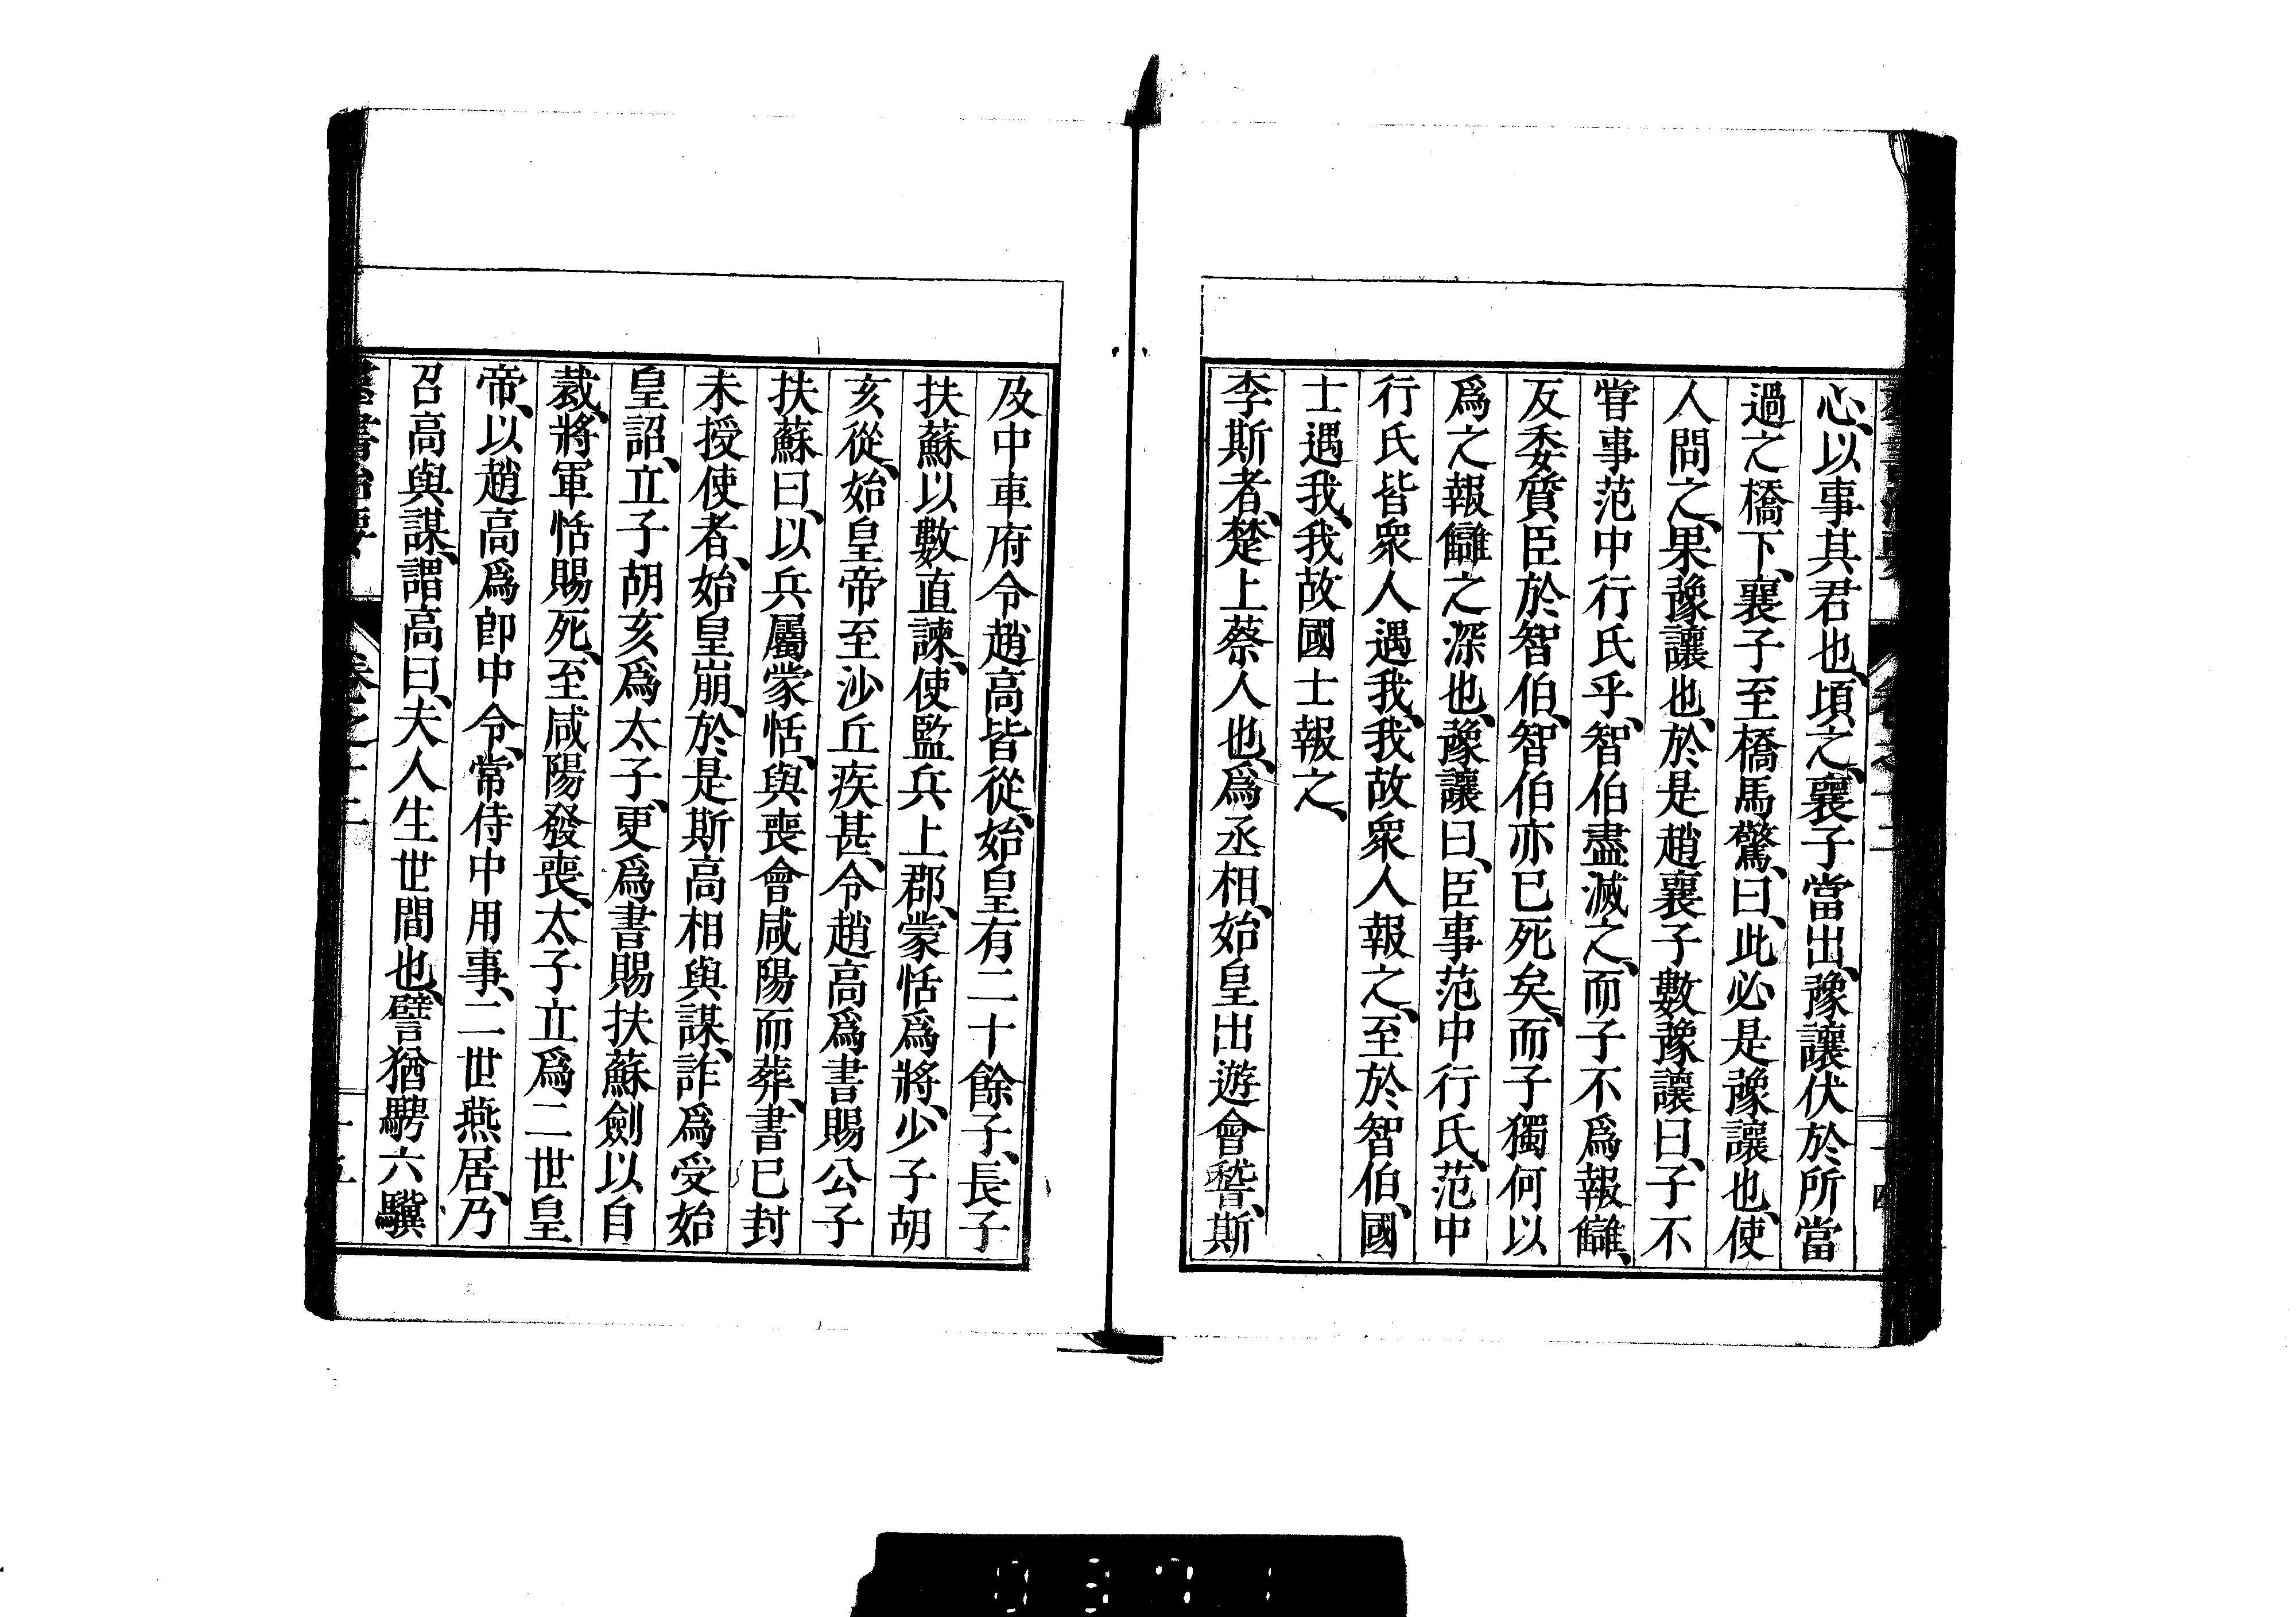 心、以事其君也、頃之、襄子當出、豫讓伏於所當
過之橋下、襄子至橋馬驚、曰、此必是豫讓也、使
人問之、果豫讓也、於是趙襄子數豫讓曰、子不
甞事范中行氏乎、智伯盡滅之、而子不爲報讎、
反委質臣於智伯、智伯亦已死矣、而子獨何以
爲之報讎之深也、豫讓曰、臣事范中行氏、范中
行氏皆衆人遇我、我故衆人報之、至於智伯、國
士遇我、我故國士報之、
李斯者、楚上蔡人也、爲丞相、始皇出遊會稽、斯
及中車府令趙高皆從、始皇有二十餘子、長子
扶蘇以數直諫、使監兵上郡、蒙恬爲將、少子胡
亥從、始皇帝至沙丘疾甚、令趙高爲書賜公子
扶蘇曰、以兵屬蒙恬、與喪會咸陽而葬、書已封
未授使者、始皇崩、於是斯高相與謀、詐爲受始
皇詔、立子胡亥爲太子、更爲書賜扶蘇劍以自
裁、將軍恬賜死、至咸陽發喪、太子立爲二世皇
帝、以趙高爲郎中令、常侍中用事、二世燕居、乃
召高與謀、謂高曰、夫人生世間也、譬猶騁六驥
羣書治要 卷之十二 十五